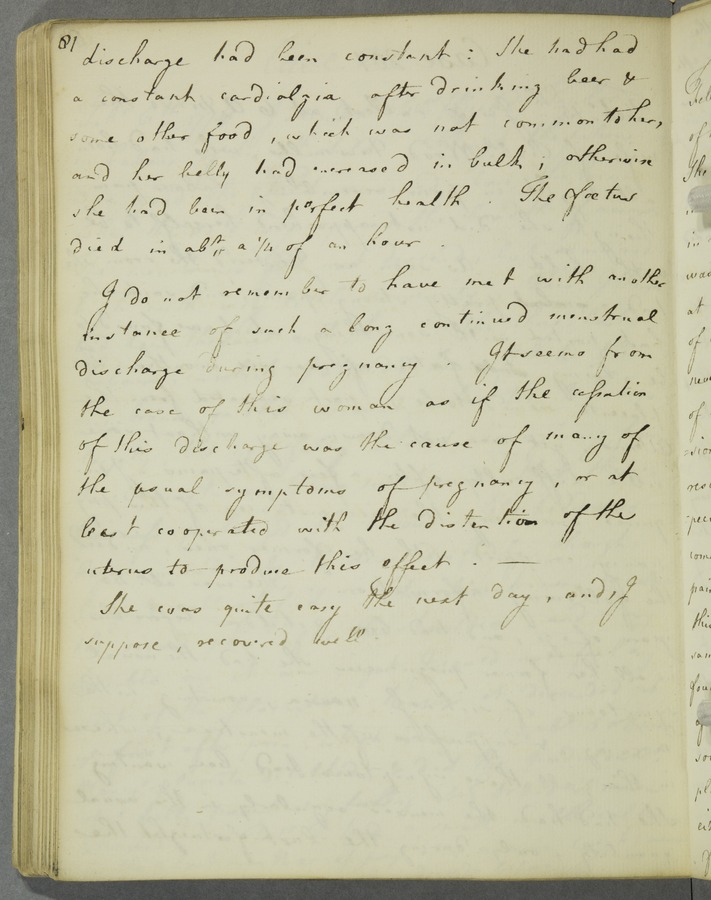 81
discharge had been constant : She had had
a constant cardialgia after drinking beer &
some other food , which was not common to her,
and her belly had increased in bulk ; otherwise
she had been in perfect health . The fœtus
died in abt. a 1/4 of an hour .
I do not remember to have met with another
instance of such a long continued menstrual
discharge during pregnancy . It seems from
the case of this woman as if the cessation
of this discharge was the cause of many of
the usual symptoms of pregnancy , or at
least cooperated with the distention of the
uterus to produce this effect . —
She was quite easy the next day , and, I
suppose , recovered well